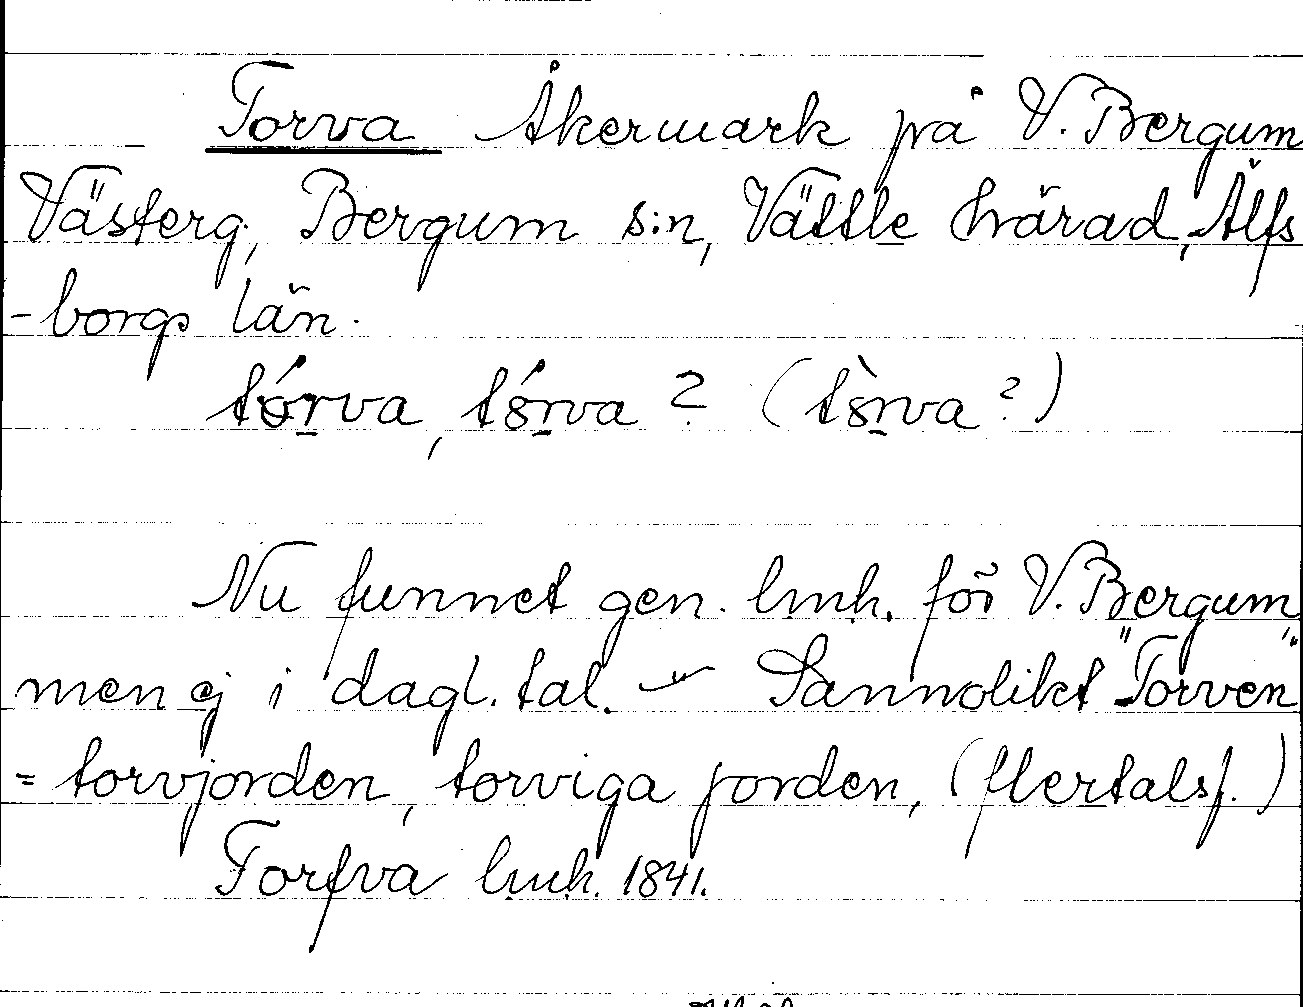 Torva Åkermark på V. Bergum
Västerg., Bergum s:n, Vättle härad, Älfs
-borgs län.
tórva, tórva ? (tòrva ?)
Nu funnet gen. lmk. för V. Bergum,
men ej i dagl. tal. – Sannolikt "Torven"
= torvjorden, torviga jorden, (flertalsf.)
Torfva lmk. 1841.